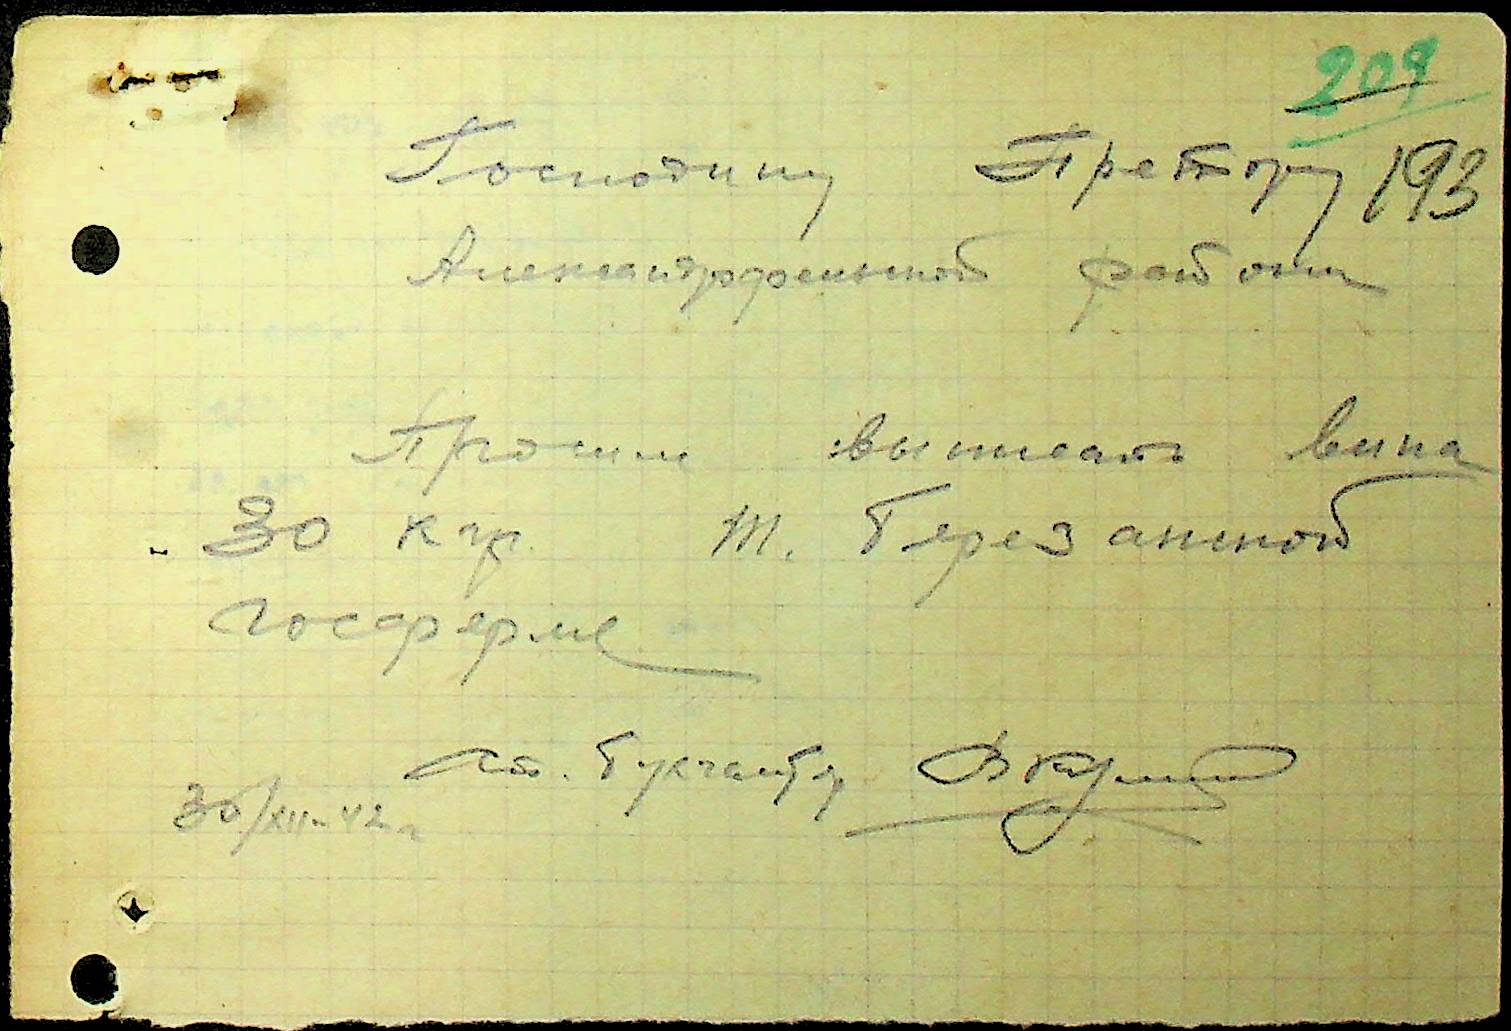 209
Господину Претору 193
Александрфельской района
Просим выписать вина
30 кгр. т. Березанской
госферме
ст. бухгалтер
30/XII-42 г.